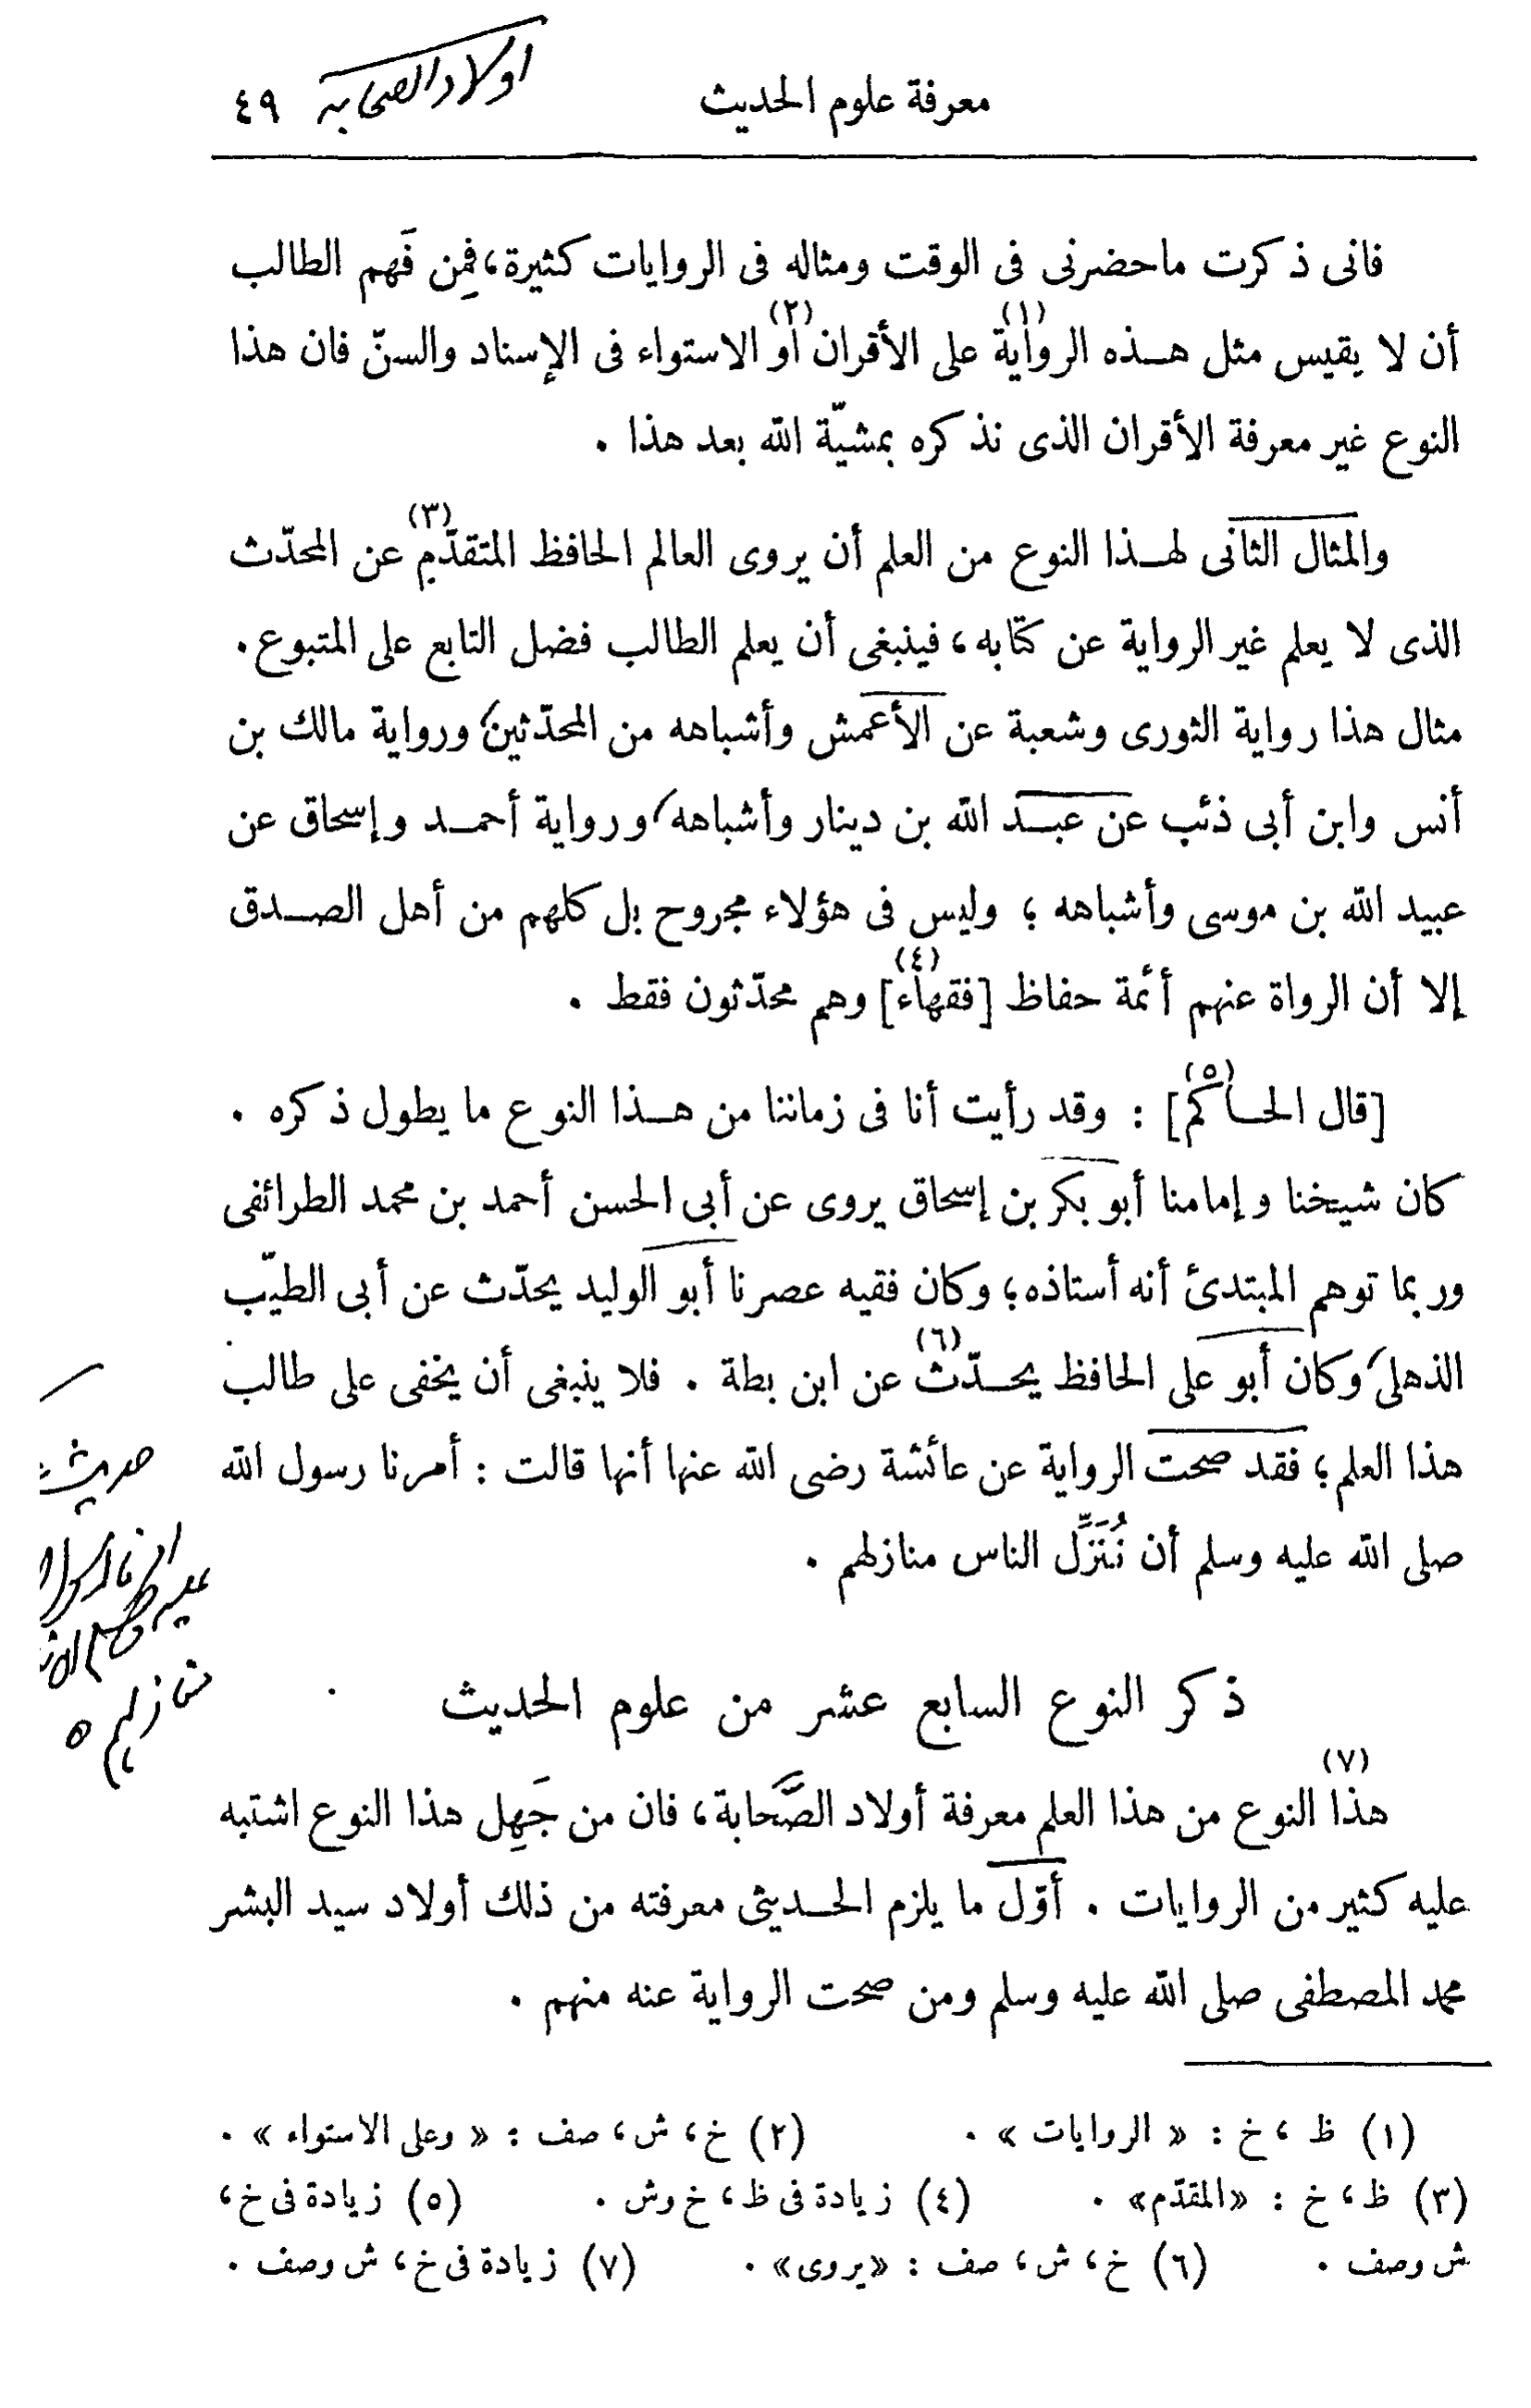 معرفة علوم الحديث
اولاد الصحابه ٤٩
فانى ذكرت ماحضرنى فى الوقت ومثاله فى الروايات كثيرة، فمِن فَهم الطالب
أن لا يقيس مثل هـذه الرواية (١) على الأقران او (٢) الاستواء فى الإسناد والسنّ فان هذا
النوع غير معرفة الأقران الذى نذكره بمشيّة الله بعد هذا .
والمثال الثانى لهـذا النوع من العلم أن يروى العالم الحافظ المتقدّم (٣) عن المحدّث
الذى لا يعلم غير الرواية عن كتّابه، فينبغى أن يعلم الطالب فضل التابع على المتبوع.
مثال هذا رواية الثورى وشعبة عن الأعمش وأشباهه من المحدّثين، ورواية مالك بن
أنس وابن أبى ذئب عن عبـد الله بن دينار وأشباهه، ورواية أحمـد وإسحاق عن
عبيد الله بن موسى وأشباهه ؛ وليس فى هؤلاء مجروح بل كلهم من أهل الصـدق
إلا أن الرواة عنهم أئمة حفاظ [فقهاء] (٤) وهم محدّثون فقط .
[قال الحـاكم] (٥) : وقد رأيت أنا فى زماننا من هـذا النوع ما يطول ذكره .
كان شيخنا وإمامنا أبو بكر بن إسحاق يروى عن أبى الحسن أحمد بن محمد الطرائفى
وربما توهم المبتدئ أنه أستاذه؛ وكان فقيه عصرنا أبو الوليد يحدّث عن أبى الطيّب
الذهلى، وكان أبو على الحافظ يحـدّث (٦) عن ابن بطة . فلا ينبغى أن يخفى على طالب
هذا العلم؛ فقد صحت الرواية عن عائشة رضى الله عنها أنها قالت : أمرنا رسول الله
صلى الله عليه وسلم أن نُنَزِّل الناس منازلهم .
حديث
امرنا رسول ا
عليه
منازلهم ٥
ذكر النوع السابع عشر من علوم الحديث
هذا (٧) النوع من هذا العلم معرفة أولاد الصَّحابة، فان من جَهِل هذا النوع اشتبه
عليه كثير من الروايات . أوّل ما يلزم الحـديثى معرفته من ذلك أولاد سيد البشر
محمد المصطفى صلى الله عليه وسلم ومن صحت الرواية عنه منهم .
(١) ظ ، خ : « الروايات » . (٢) خ، ش، صف : « وعلى الاستواء » .
(٣) ظ، خ : «المقدّم» . (٤) زيادة فى ظ، خ وش . (٥) زيادة فى خ،
ش وصف . (٦) خ، ش، صف : «يروى» . (٧) زيادة فى خ، ش وصف .